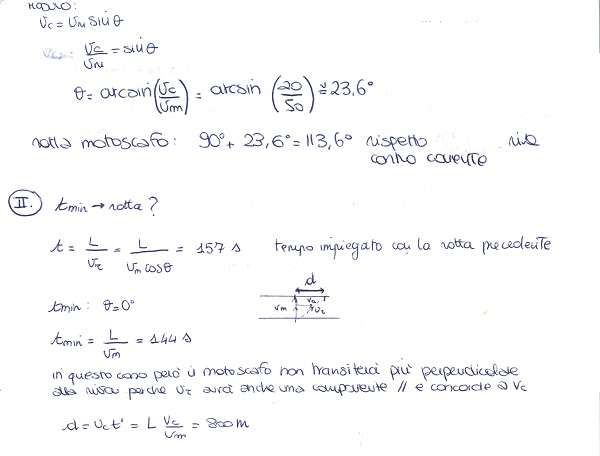 modulo:
Vc = Vm sinθ
Vc/Vm = sinθ
θ = arcsin(Vc/Vm) = arcsin (20/50) ≅ 23,6°
rotta motoscafo: 90° + 23,6° = 113,6° rispetto riva
contro corrente
II. tmin → rotta?
t = L/Vr = L/Vm cosθ = 157 s tempo impiegato con la rotta precedente
d
Vm Vc Vr
tmin: θ = 0°
tmin = L/Vm = 144 s
in questo caso però il motoscafo non transiterà più perpendicolare
alla riva perchè Vr avrà anche una componente // e concorde a Vc
d = Vc t' = L Vc/Vm = 800 m